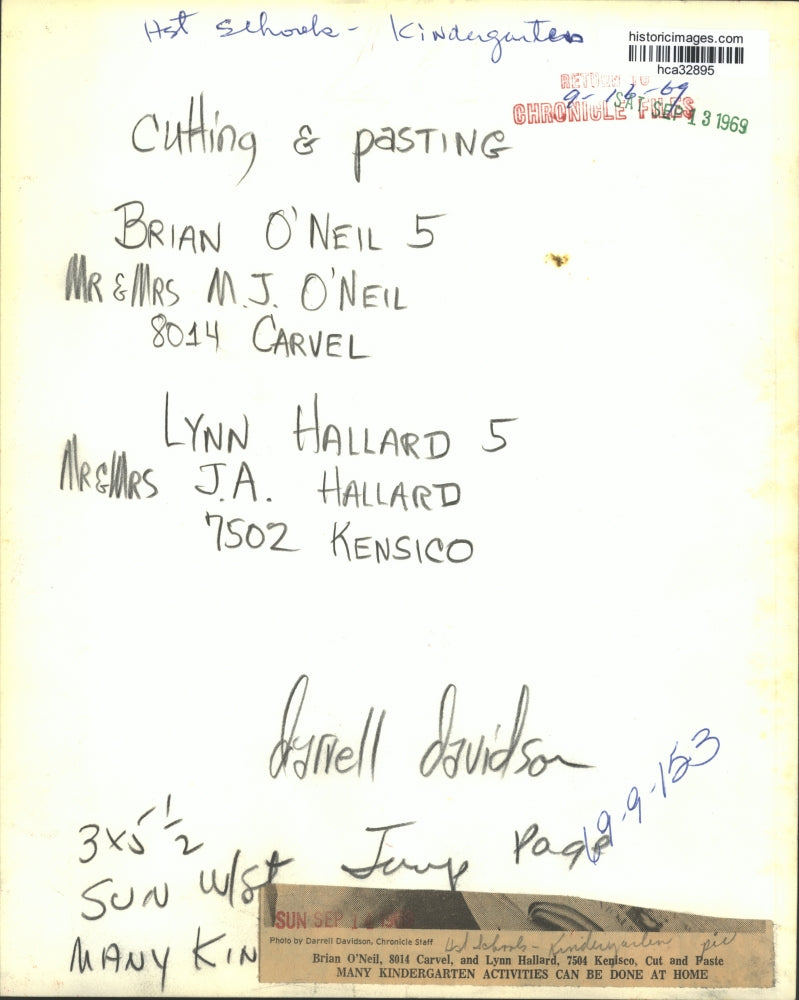 Hst Schools - Kindergarten
historicimages.com
hca32895
RETURN TO
9-16-69
CHRONICLE FILES
SAT SEP 13 1969
Cutting & PASTING
BRIAN O'NEIL 5
MR & MRS M.J. O'NEIL
8014 CARVEL
LYNN HALLARD 5
MR & MRS J.A. HALLARD
7502 KENSICO
Darrell Davidson
69-9-153
3x5 1/2
Jump Page
SUN W/St
MANY KIN
SUN SEP 14 1969
Photo by Darrell Davidson, Chronicle Staff
Hst Schools - Kindergarten pic
Brian O'Neil, 8014 Carvel, and Lynn Hallard, 7504 Kenisco, Cut and Paste
MANY KINDERGARTEN ACTIVITIES CAN BE DONE AT HOME